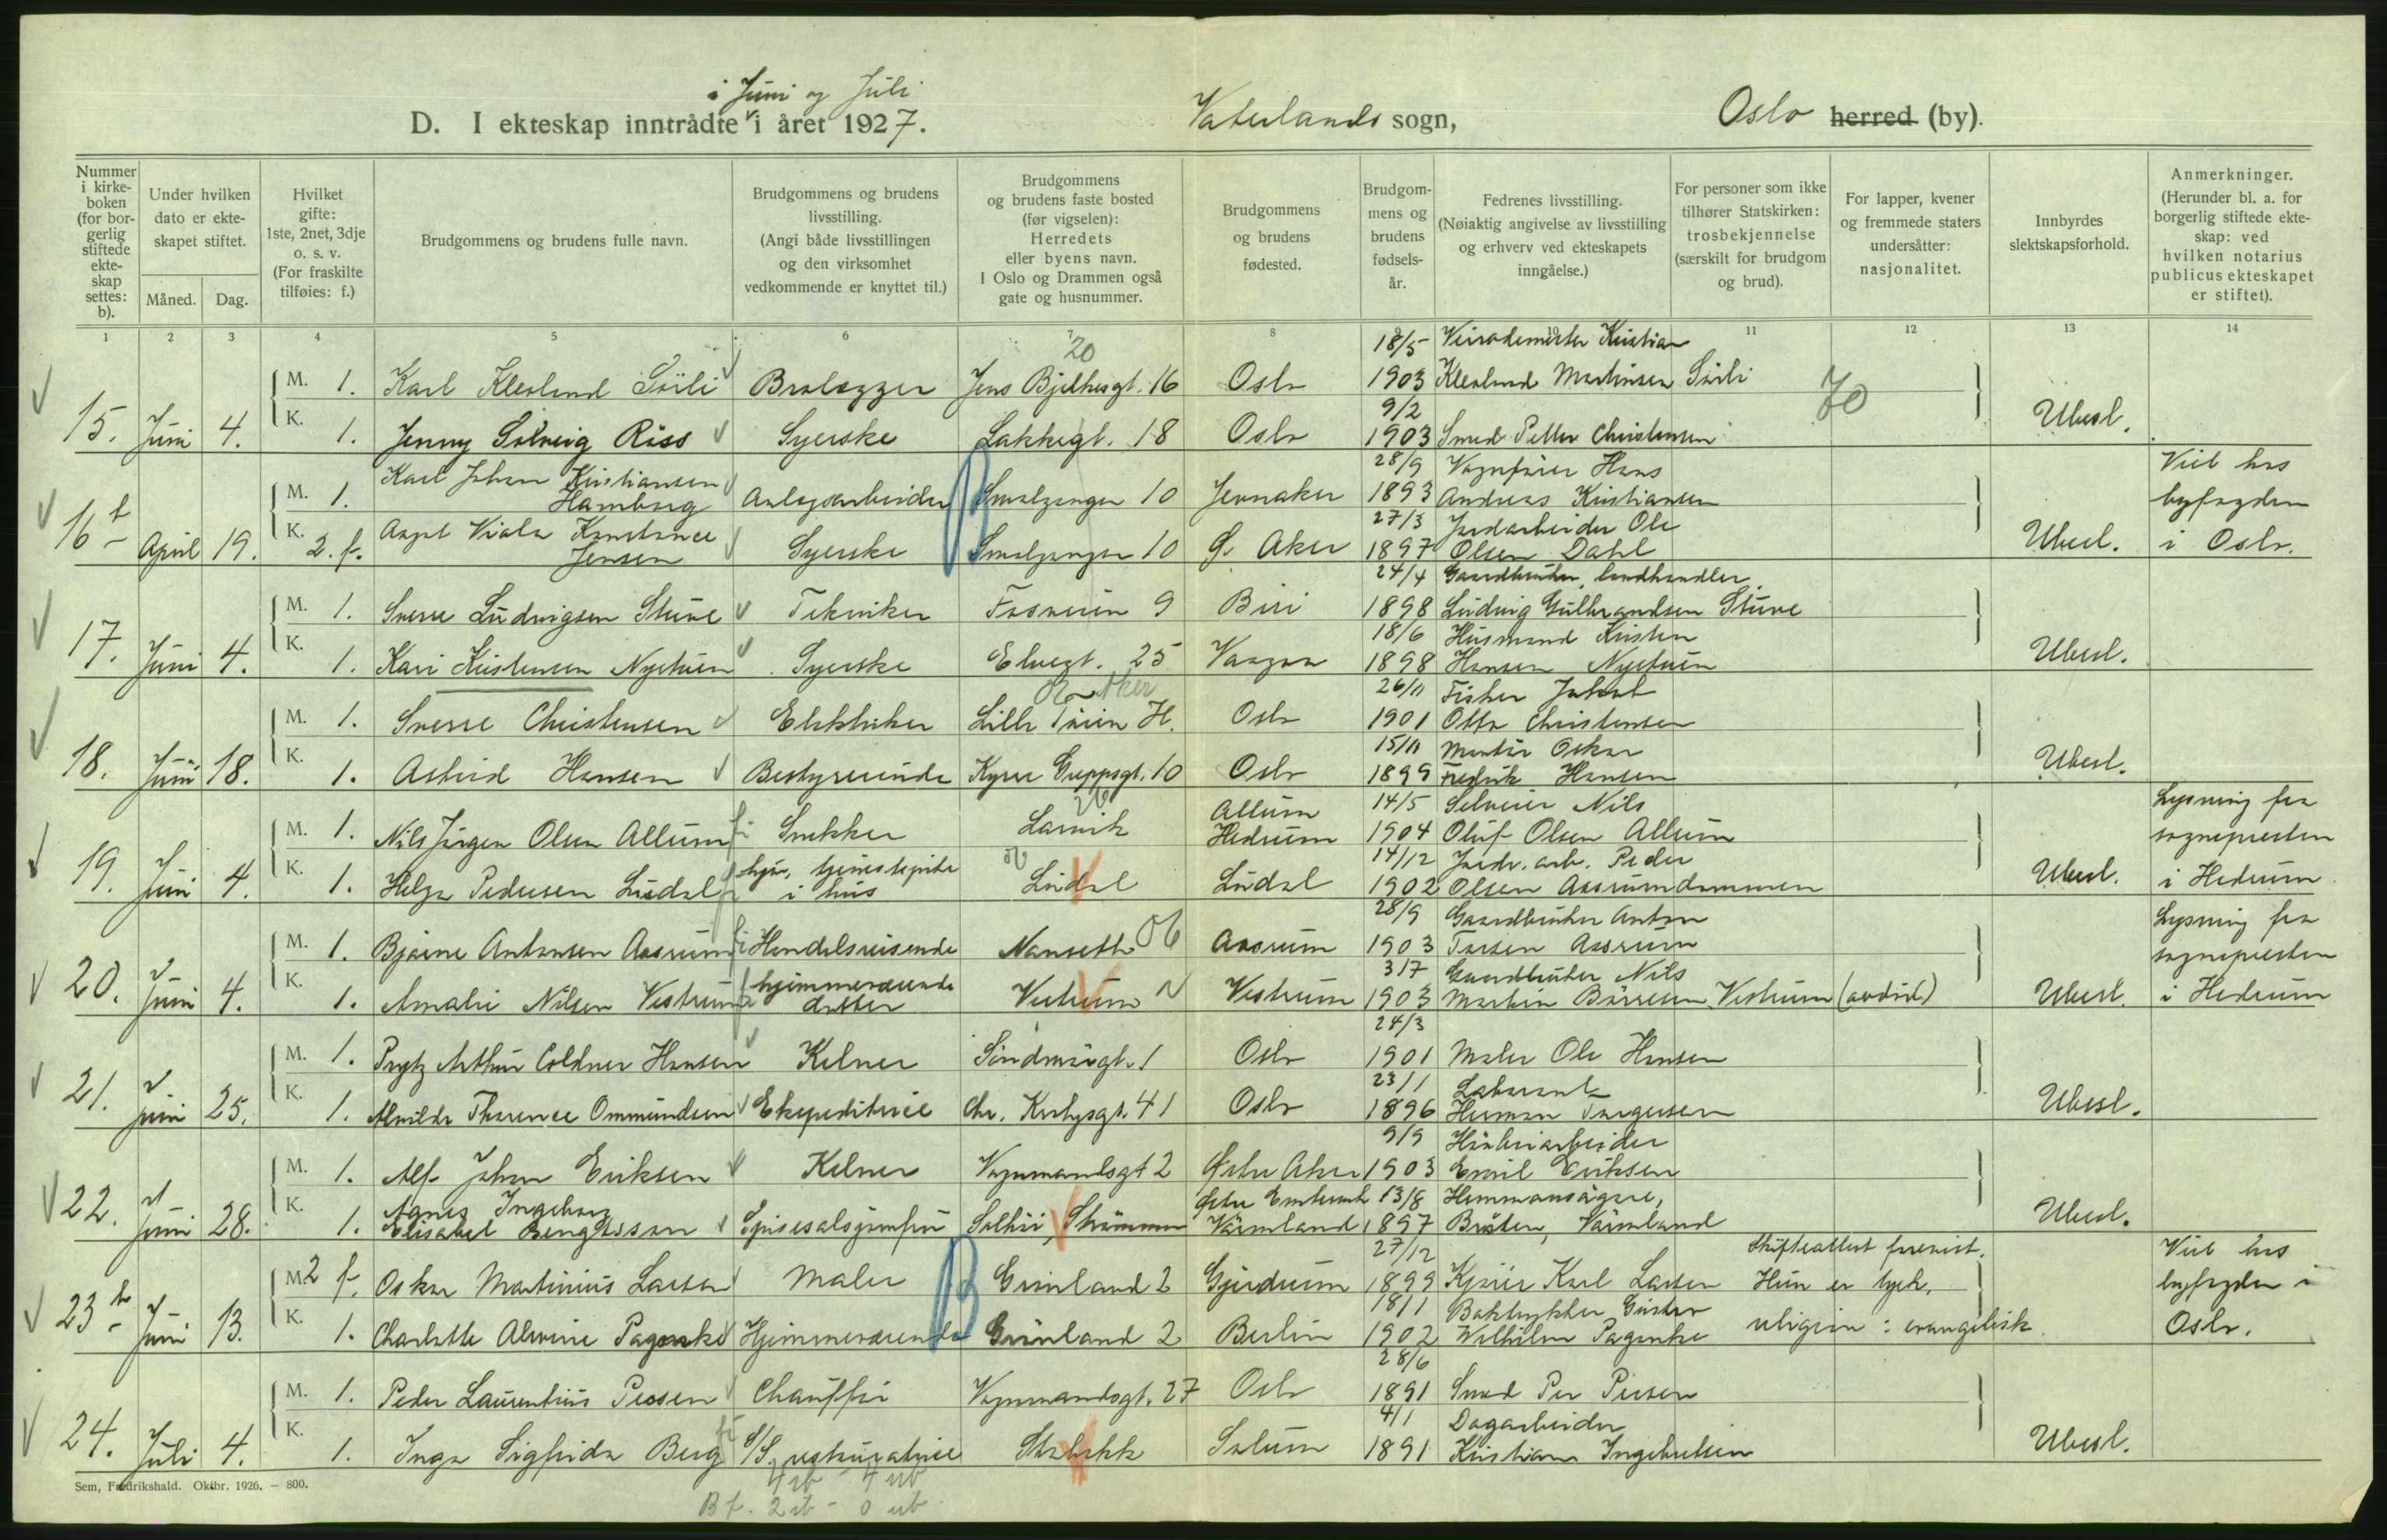 i Juni og Juli
D. I ekteskap inntrådte i året 1927. Vaterlands sogn, Oslo herred (by).
Nummer i kirkeboken (for borgerlig stiftede ekteskap settes: b).
Under hvilken dato er ekteskapet stiftet.
Måned. Dag.
Hvilket gifte: 1ste, 2net, 3dje o. s. v. (For fraskilte tilføies: f.)
Brudgommens og brudens fulle navn.
Brudgommens og brudens livsstilling. (Angi både livsstillingen og den virksomhet vedkommende er knyttet til.)
Brudgommens og brudens faste bosted (før vigselen): Herredets eller byens navn. I Oslo og Drammen også gate og husnummer.
Brudgommens og brudens fødested.
Brudgommens og brudens fødselsår.
Fedrenes livsstilling. (Nøiaktig angivelse av livsstilling og erhverv ved ekteskapets inngåelse.)
For personer som ikke tilhører Statskirken: trosbekjennelse (særskilt for brudgom og brud).
For lapper, kvener og fremmede staters undersåtter: nasjonalitet.
Innbyrdes slektskapsforhold.
Anmerkninger. (Herunder bl. a. for borgerlig stiftede ekteskap: ved hvilken notarius publicus ekteskapet er stiftet).
1 2 3 4 5 6 7 8 9 10 11 12 13 14
20 18/5 Kristian
M. 1. Karl Klevlund Sörli Brolegger Jens Bjelkesgt. 16 Oslo 1903 Klevlund Martinsen Sörli 70
9/2
15. Juni 4. K. 1. Jenny Solveig Riss Syerske Lakkegt. 18 Oslo 1903 Smed Petter Christensen Ubesl.
Karl Johan Kristiansen 28/9 Vognfører Hans Viet hos
M. 1. Hamborg Anlegsarbeider Smalgangen 10 Jevnaker 1893 Andreas Kristiansen byfogden
Aagot Viola Konstance 27/3 Jordarbeider Ole
16 b April 19. K. 2. f. Jensen Syerske Smalgangen 10 Ø. Aker 1897 Olsen Dahl Ubesl. i Oslo.
24/4 Gaardbruker, landhandler
M. 1. Sverre Ludvigsen Stuve Tekniker Fosveien 9 Biri 1898 Ludvig Gulbrandsen Stuve
18/6 Husmand Kristen
17. Juni 4. K. 1. Kari Kristensen Nystuen Syerske Elvegt. 25 Vaagaa 1898 Hansen Nystuen Ubesl.
Aker 26/11 Fisker Jakob
M. 1. Sverre Christensen Elektriker Lille Tøien H. Oslo 1901 Otto Christensen
15/11 Montør Oskar
18. Juni 18. K. 1. Astrid Hansen Bestyrerinde Kyrre Greppsgt. 10 Oslo 1899 Fredrik Hansen Ubesl.
Allum 14/5 Selveier Nils Lysning fra
M. 1. Nils Jörgen Olsen Allum Snekker Larvik Hedrum 1904 Oluf Olsen Allum sognepresten
hjv. tjenestepike 14/12 Jordr. arb. Peder
19. Juni 4. K. 1. Helga Pedersen Lüdal i hus Lüdal Lüdal 1902 Olsen Aasrumdammen Ubesl. i Hedrum
28/9 Gaardbruker Anton Lysning fra
M. 1. Bjarne Antonsen Aasrum Handelsreisende Nanseth Aasrum 1903 Aasrum sognepresten
hjemmeværende 3/7 Gaardbruker Nils
20. Juni 4. K. 1. Amalie Nilsen Vestrum datter Vestrum Vestrum 1903 Martin Börresen Vestrum (avdöd) Ubesl. i Hedrum
24/3
M. 1. Prytz Arthur Coldner Hansen Kelner Söndmörgt. 1 Oslo 1901 Maler Ole Hansen
23/11
21. Juni 25. K. 1. Alvilde Thorence Ommundsen Ekspeditrice Chr. Krohgsgt. 41 Oslo 1896 Herman Torgersen Ubesl.
9/9
M. 1. Alf Johan Eriksen Kelner Vognmandsgt 2 Østre Aker 1903 Emil Eriksen
Agnes Ingeborg Östre Emtervik 13/8 Hemmansägare,
22. Juni 28. K. 1. Elisabet Bengtsson Spisesalsjomfru Solhöi, Strömmen Värmland 1897 Bråten, Värmland Ubesl.
27/12 Skifteattest forevist. Viet hos
M. 2 f. Oskar Martinius Larsen Maler Grönland 2 Gjerdrum 1899 Kjører Karl Larsen Hun er tysk, byfogden i
18/1 Boktrykker Gustav
23 b Juni 13. K. 1. Charlotte Alwine Pagenke Hjemmeværende Grönland 2 Berlin 1902 Wilhelm Pagenke religion: evangelisk Oslo.
28/6
M. 1. Peder Laurentius Persen Chauffør Vognmandsgt. 27 Oslo 1891 Smed Per Persen
4/1 Dagarbeider
24. Juli 4. K. 1. Inga Sigfrida Berg S/S restauratrice Stabekk Solum 1891 Kristian Ingebretsen Ubesl.
Sem, Fredrikshald. Oktbr. 1926. – 800.
4 ib 4 ub
Bf. 2 ib - 0 ub